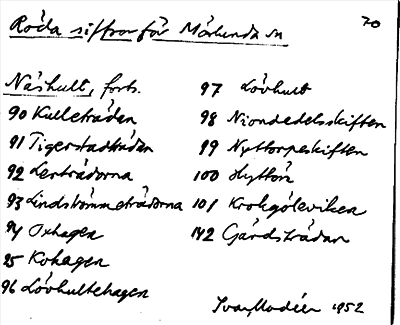 70
Röda siffror för Mörlunda sn
Näshult, forts.
90 Kulleträdan
91 Tigerstadträdan
92 Lerträdorna
93 Lindströmmeträdorna
94 Oxhagen
95 Kohagen
96 Lövhultehagen
97 Lövhult
98 Niondedelsskiften
99 Nyttorpeskiften
100 Hyttön
101 Krokgöleviken
142 Gärdsträdan
Ivar Modéer 1952